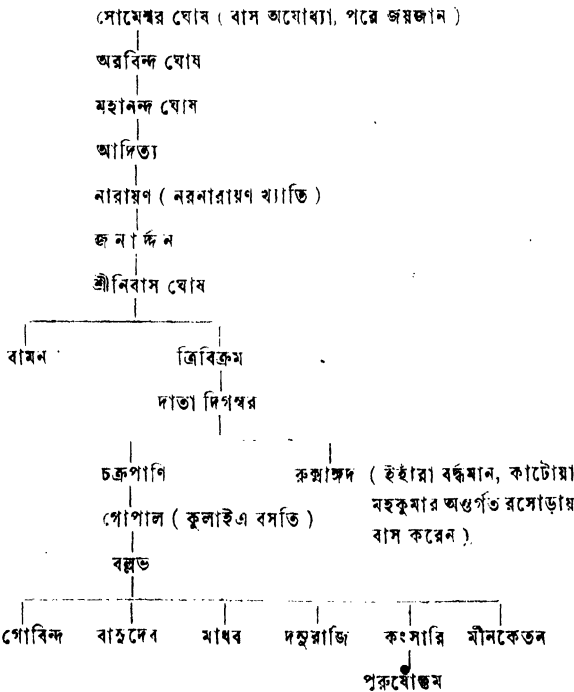 সোমেশ্বর ঘোষ ( বাস অযোধ্যা, পরে জয়জান )
অরবিন্দ ঘোষ
মহানন্দ ঘোষ
আদিত্য
নারায়ণ ( নরনারায়ণ খ্যাতি )
জনার্দ্দন
শ্রীনিবাস ঘোষ
বামন ত্রিবিক্রম
দাতা দিগম্বর
চক্রপাণি রুক্মাঙ্গদ ( ইহাঁরা বর্দ্ধমান, কাটোয়া
মহকুমার অন্তর্গত রসোড়ায়
গোপাল ( কুলাইএ বসতি ) বাস করেন )
বল্লভ
গোবিন্দ বাসুদেব মাধব দনুরাজি কংসারি মীনকেতন
পুরুষোত্তম